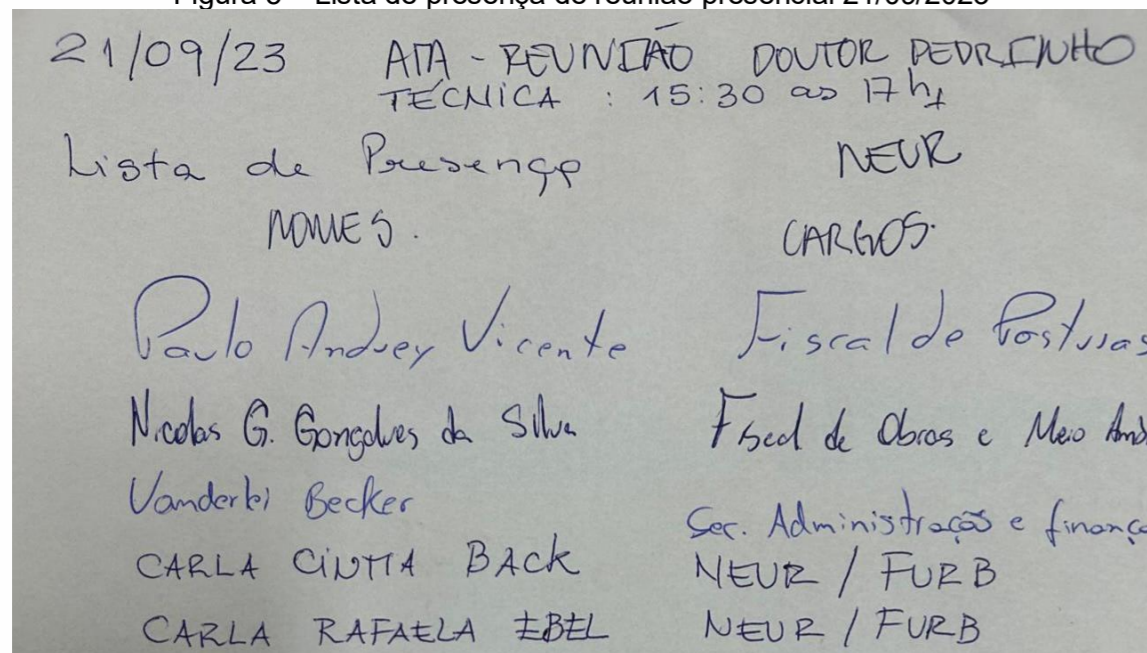 21/09/23 ATA - REUNIÃO DOUTOR PEDRINHO
TÉCNICA : 15:30 as 17 hs
Lista de Presença NEUR
NOMES. CARGOS.
Paulo Andrey Vicente Fiscal de Posturas
Nicolas G. Gonçalves da Silva Fiscal de Obras e Meio Amb
Vanderlei Becker Sec. Administração e finança
CARLA CINTIA BACK NEUR / FURB
CARLA RAFAELA EBEL NEUR / FURB